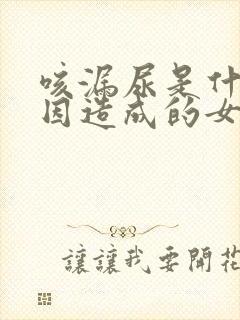 咳漏尿是什
因造成的女
讓讓我要開花